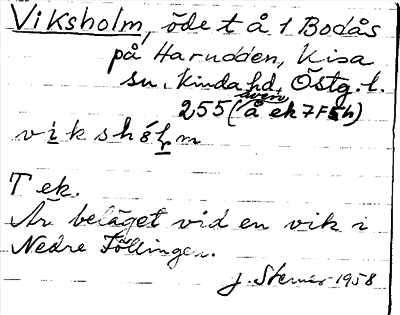 Viksholm, öde t å 1 Bodås
på Harudden, Kisa
sn, Kinda hd, Östg. l.
även
255 (å ek 7F5h)
vikshólm
T ek.
Är beläget vid en vik i
Nedre Föllingen.
J. Sterner 1958